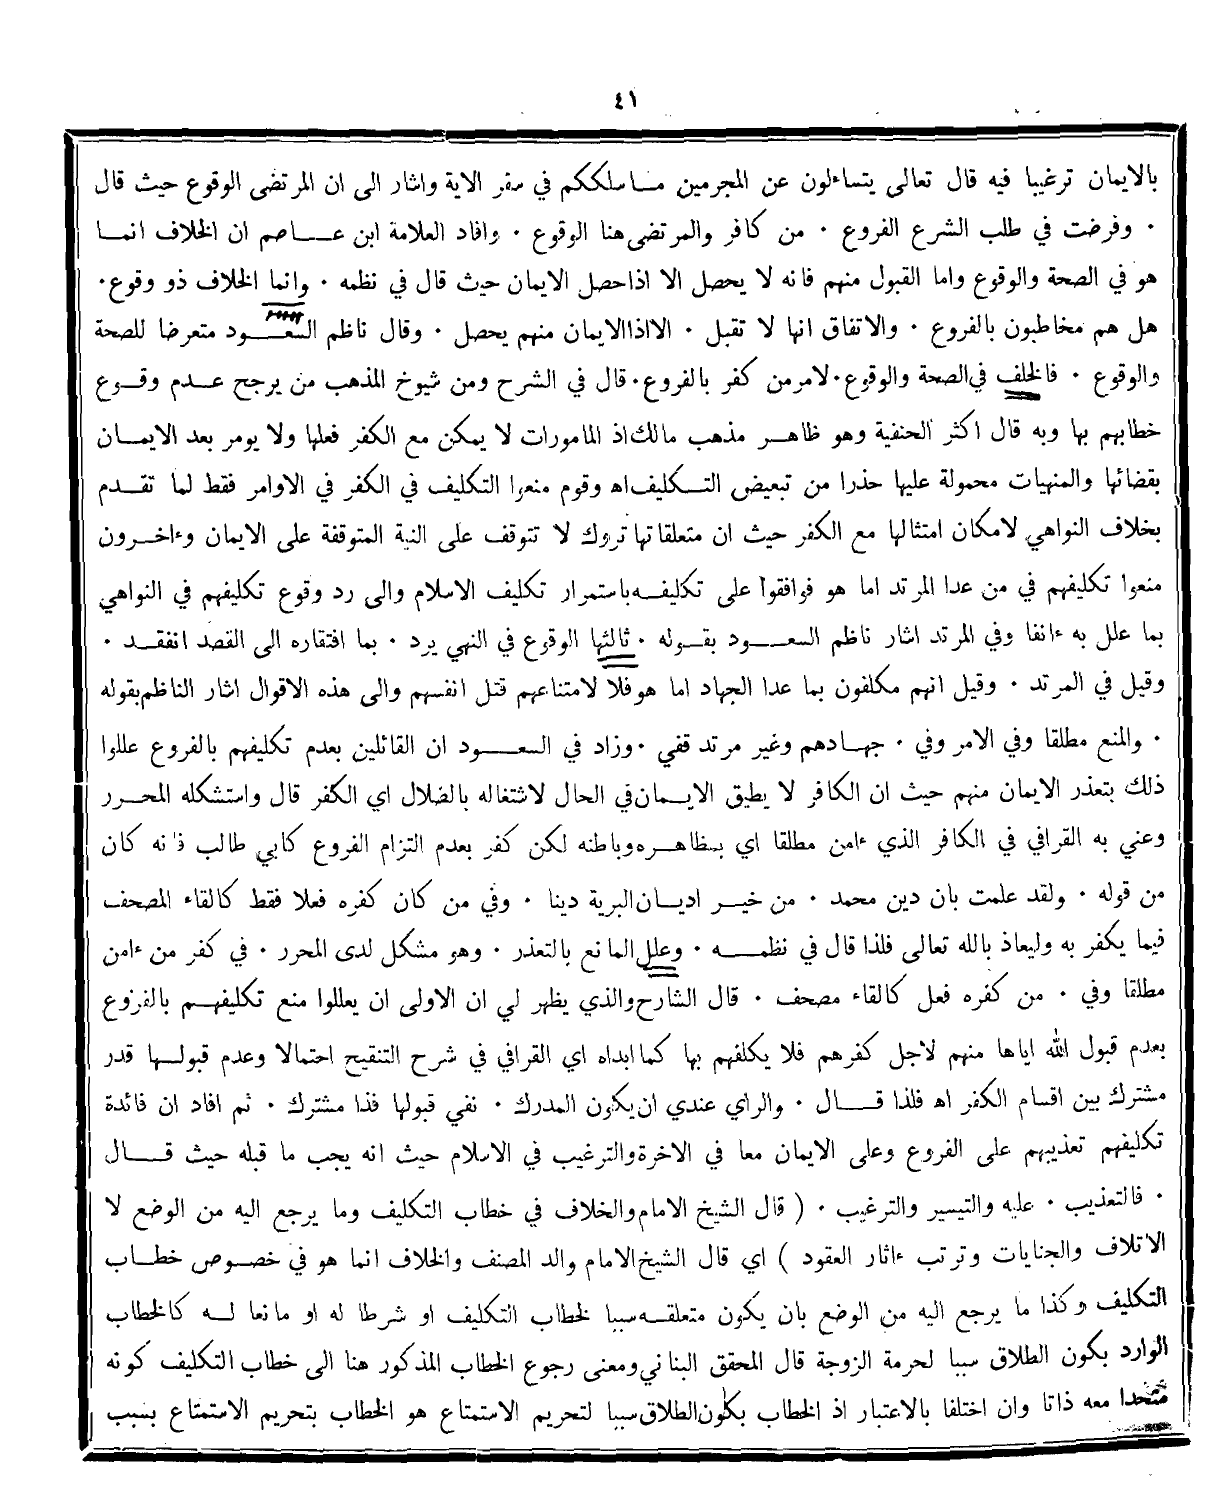 ٤١
بالايمان ترغيبا فيه قال تعالى يتساءلون عن المجرمين ماسلككم في سقر الاية واشار الى ان المرتضى الوقوع حيث قال
٠ وفرضت في طلب الشرع الفروع ٠ من كافر والمرتضى هنا الوقوع ٠ وافاد العلامة ابن عاصم ان الخلاف انما
هو في الصحة والوقوع واما القبول منهم فانه لا يحصل الا اذا حصل الايمان حيث قال في نظمه ٠ وانما الخلاف ذو وقوع ٠
هل هم مخاطبون بالفروع ٠ والاتفاق انها لا تقبل ٠ الا اذا الايمان منهم يحصل ٠ وقال ناظم السعود متعرضا للصحة
والوقوع ٠ فالخلف في الصحة والوقوع ٠ لامر من كفر بالفروع ٠ قال في الشرح ومن شيوخ المذهب من يرجح عدم وقوع
خطابهم بها وبه قال اكثر الحنفية وهو ظاهر مذهب مالك اذ المامورات لا يمكن مع الكفر فعلها ولا يومر بعد الايمان
بقضائها والمنهيات محمولة عليها حذرا من تبعيض التكليف اه وقوم منعوا التكليف في الكفر في الاوامر فقط لما تقدم
بخلاف النواهي لامكان امتثالها مع الكفر حيث ان متعلقاتها تروك لا تتوقف على النية المتوقفة على الايمان وءاخرون
منعوا تكليفهم في من عدا المرتد اما هو فوافقوا على تكليفه باستمرار تكليف الاسلام والى رد وقوع تكليفهم في النواهي
بما علل به ءانفا وفي المرتد اشار ناظم السعود بقوله ٠ ثالثها الوقوع في النهي يرد ٠ بما افتقاره الى القصد انفقد ٠
وقيل في المرتد ٠ وقيل انهم مكلفون بما عدا الجهاد اما هو فلا لامتناعهم قتل انفسهم والى هذه الاقوال اشار الناظم بقوله
٠ والمنع مطلقا وفي الامر وفي ٠ جهادهم وغير مرتد قفي ٠ وزاد في السعود ان القائلين بعدم تكليفهم بالفروع عللوا
ذلك بتعذر الايمان منهم حيث ان الكافر لا يطيق الايمان في الحال لاشتغاله بالضلال اي الكفر قال واستشكله المحرر
وعني به القرافي في الكافر الذي ءامن مطلقا اي بظاهره وباطنه لكن كفر بعدم التزام الفروع كابي طالب فانه كان
من قوله ٠ ولقد علمت بان دين محمد ٠ من خير اديان البرية دينا ٠ وفي من كان كفره فعلا فقط كالقاء المصحف
فيما يكفر به وليعاذ بالله تعالى فلذا قال في نظمه ٠ وعلل المانع بالتعذر ٠ وهو مشكل لدى المحرر ٠ في كفر من ءامن
مطلقا وفي ٠ من كفره فعل كالقاء مصحف ٠ قال الشارح والذي يظهر لي ان الاولى ان يعللوا منع تكليفهم بالفروع
بعدم قبول الله اياها منهم لاجل كفرهم فلا يكلفهم بها كما ابداه اي القرافي في شرح التنقيح احتمالا وعدم قبولها قدر
مشترك بين اقسام الكفر اه فلذا قال ٠ والراي عندي ان يكون المدرك ٠ نفي قبولها فذا مشترك ٠ ثم افاد ان فائدة
تكليفهم تعذيبهم على الفروع وعلى الايمان معا في الاخرة والترغيب في الاسلام حيث انه يجب ما قبله حيث قال
٠ فالتعذيب ٠ عليه والتيسير والترغيب ٠ ( قال الشيخ الامام والخلاف في خطاب التكليف وما يرجع اليه من الوضع لا
الاتلاف والجنايات وترتب ءاثار العقود ) اي قال الشيخ الامام والد المصنف والخلاف انما هو في خصوص خطاب
التكليف وكذا ما يرجع اليه من الوضع بان يكون متعلقه سببا لخطاب التكليف او شرطا له او مانعا له كالخطاب
الوارد بكون الطلاق سببا لحرمة الزوجة قال المحقق البناني ومعنى رجوع الخطاب المذكور هنا الى خطاب التكليف كونه
متحدا معه ذاتا وان اختلفا بالاعتبار اذ الخطاب بكون الطلاق سببا لتحريم الاستمتاع هو الخطاب بتحريم الاستمتاع بسبب